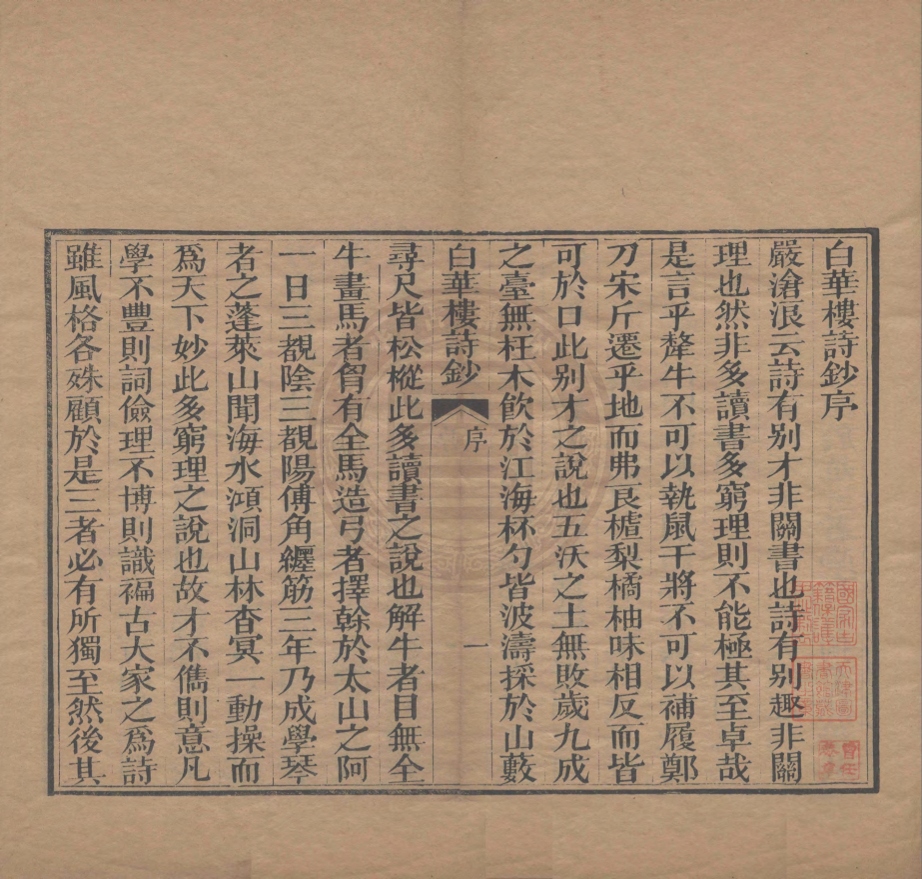 白華樓詩鈔序
嚴滄浪云詩有别才非關書也詩有别趣非關
理也然非多讀書多窮理則不能極其至卓哉
是言乎犛牛不可以執鼠干將不可以補履鄭
刀宋斤遷乎地而弗良樝梨橘柚味相反而皆
可於口此别才之說也五沃之土無敗歲九成
之臺無枉木飲於江海杯勺皆波濤採於山藪
白華樓詩鈔 序 一
尋尺皆松樅此多讀書之說也解牛者目無全
牛畫馬者胷有全馬造弓者擇榦於太山之阿
一日三覩陰三覩陽傅角纏筋三年乃成學琴
者之蓬萊山聞海水澒洞山林杳冥一動操而
爲天下妙此多窮理之說也故才不儁則意凡
學不豐則詞儉理不博則識褊古大家之爲詩
雖風格各殊顧於是三者必有所獨至然後其